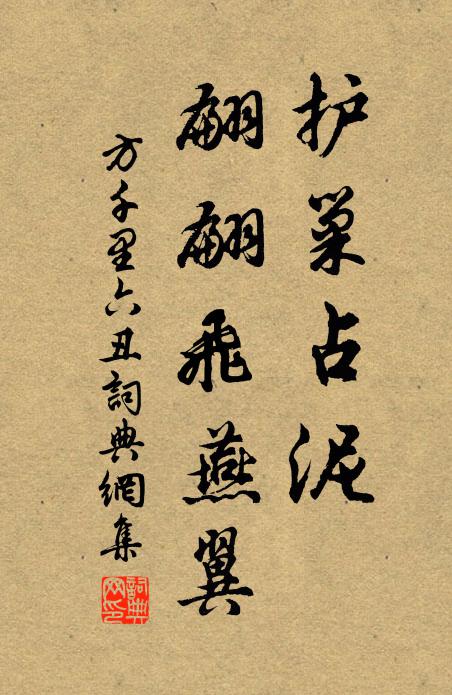 护巢占泥
翩翩飛燕翼
方千里六丑詞典網集
詞典
网印